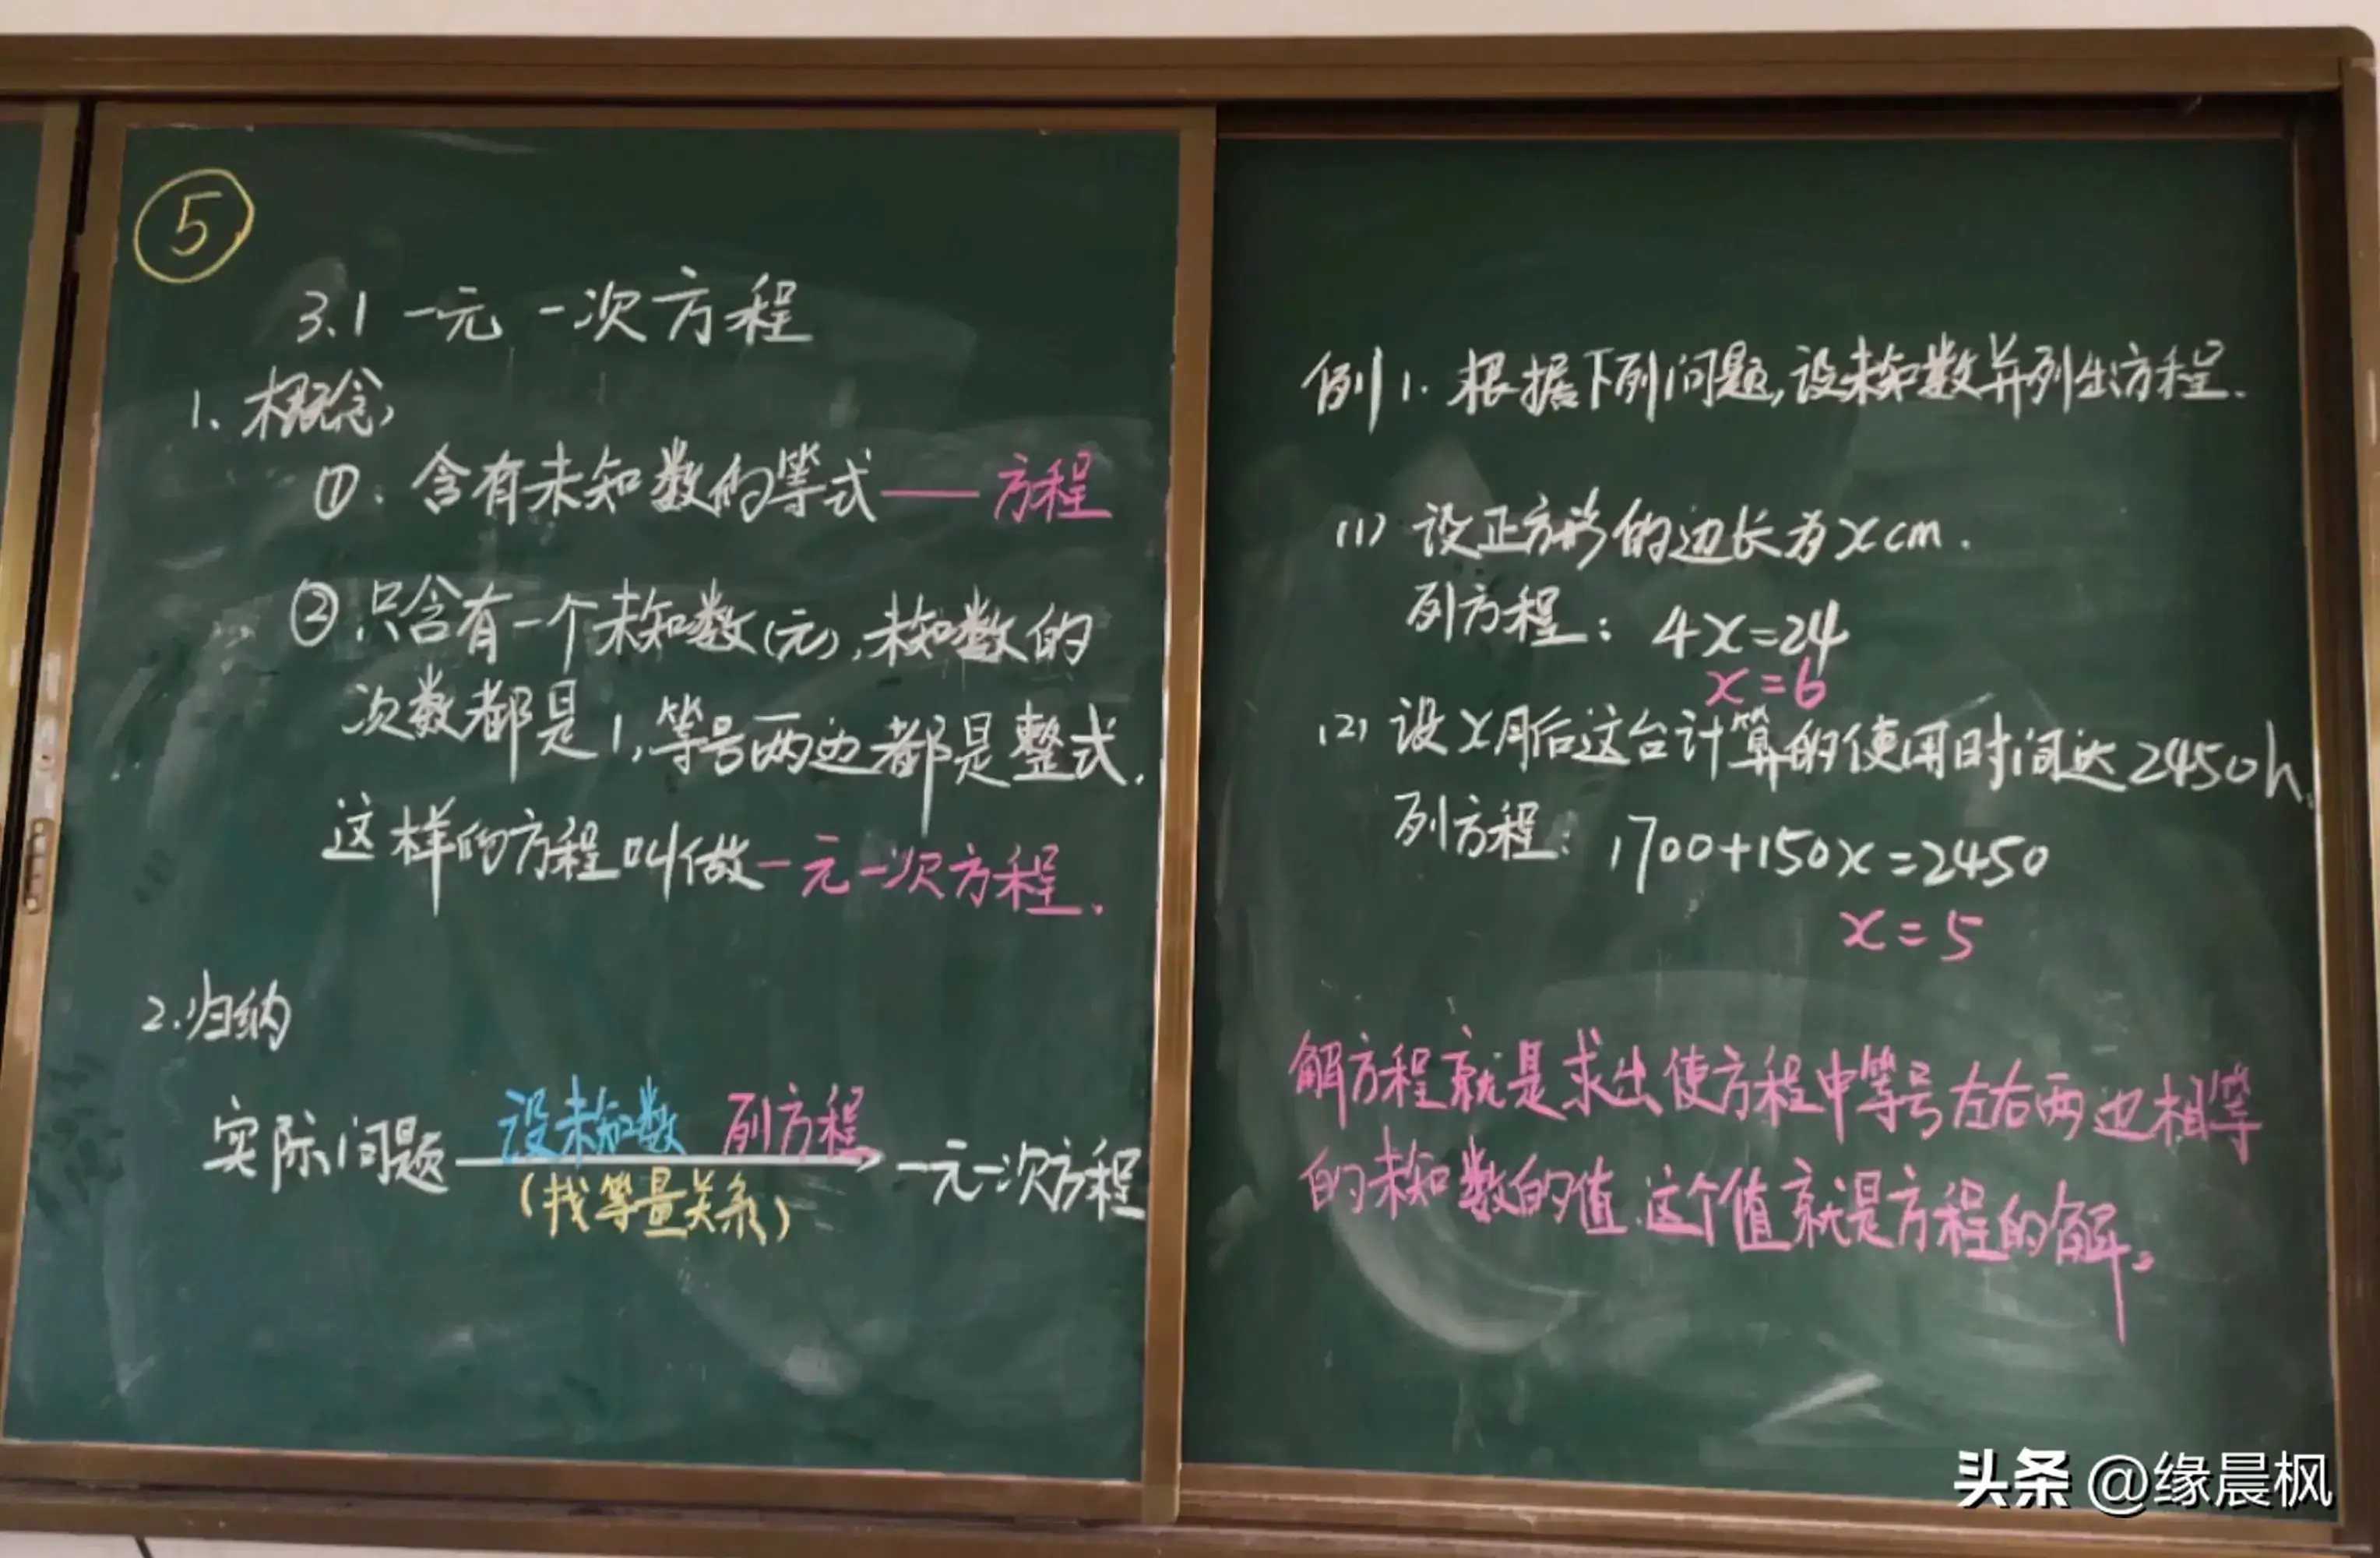 ⑤
3.1 一元一次方程
1. 概念
①. 含有未知数的等式——方程
② 只含有一个未知数(元),未知数的
次数都是1,等号两边都是整式.
这样的方程叫做一元一次方程.
2.归纳
设未知数 列方程
实际问题 → 一元一次方程
(找等量关系)
例1. 根据下列问题,设未知数并列出方程.
(1) 设正方形的边长为xcm.
列方程: 4x=24
x=6
(2) 设x月后这台计算的使用时间达2450h.
列方程: 1700+150x=2450
x=5
解方程就是求出使方程中等号左右两边相等
的未知数的值.这个值就是方程的解。
头条 @缘晨枫